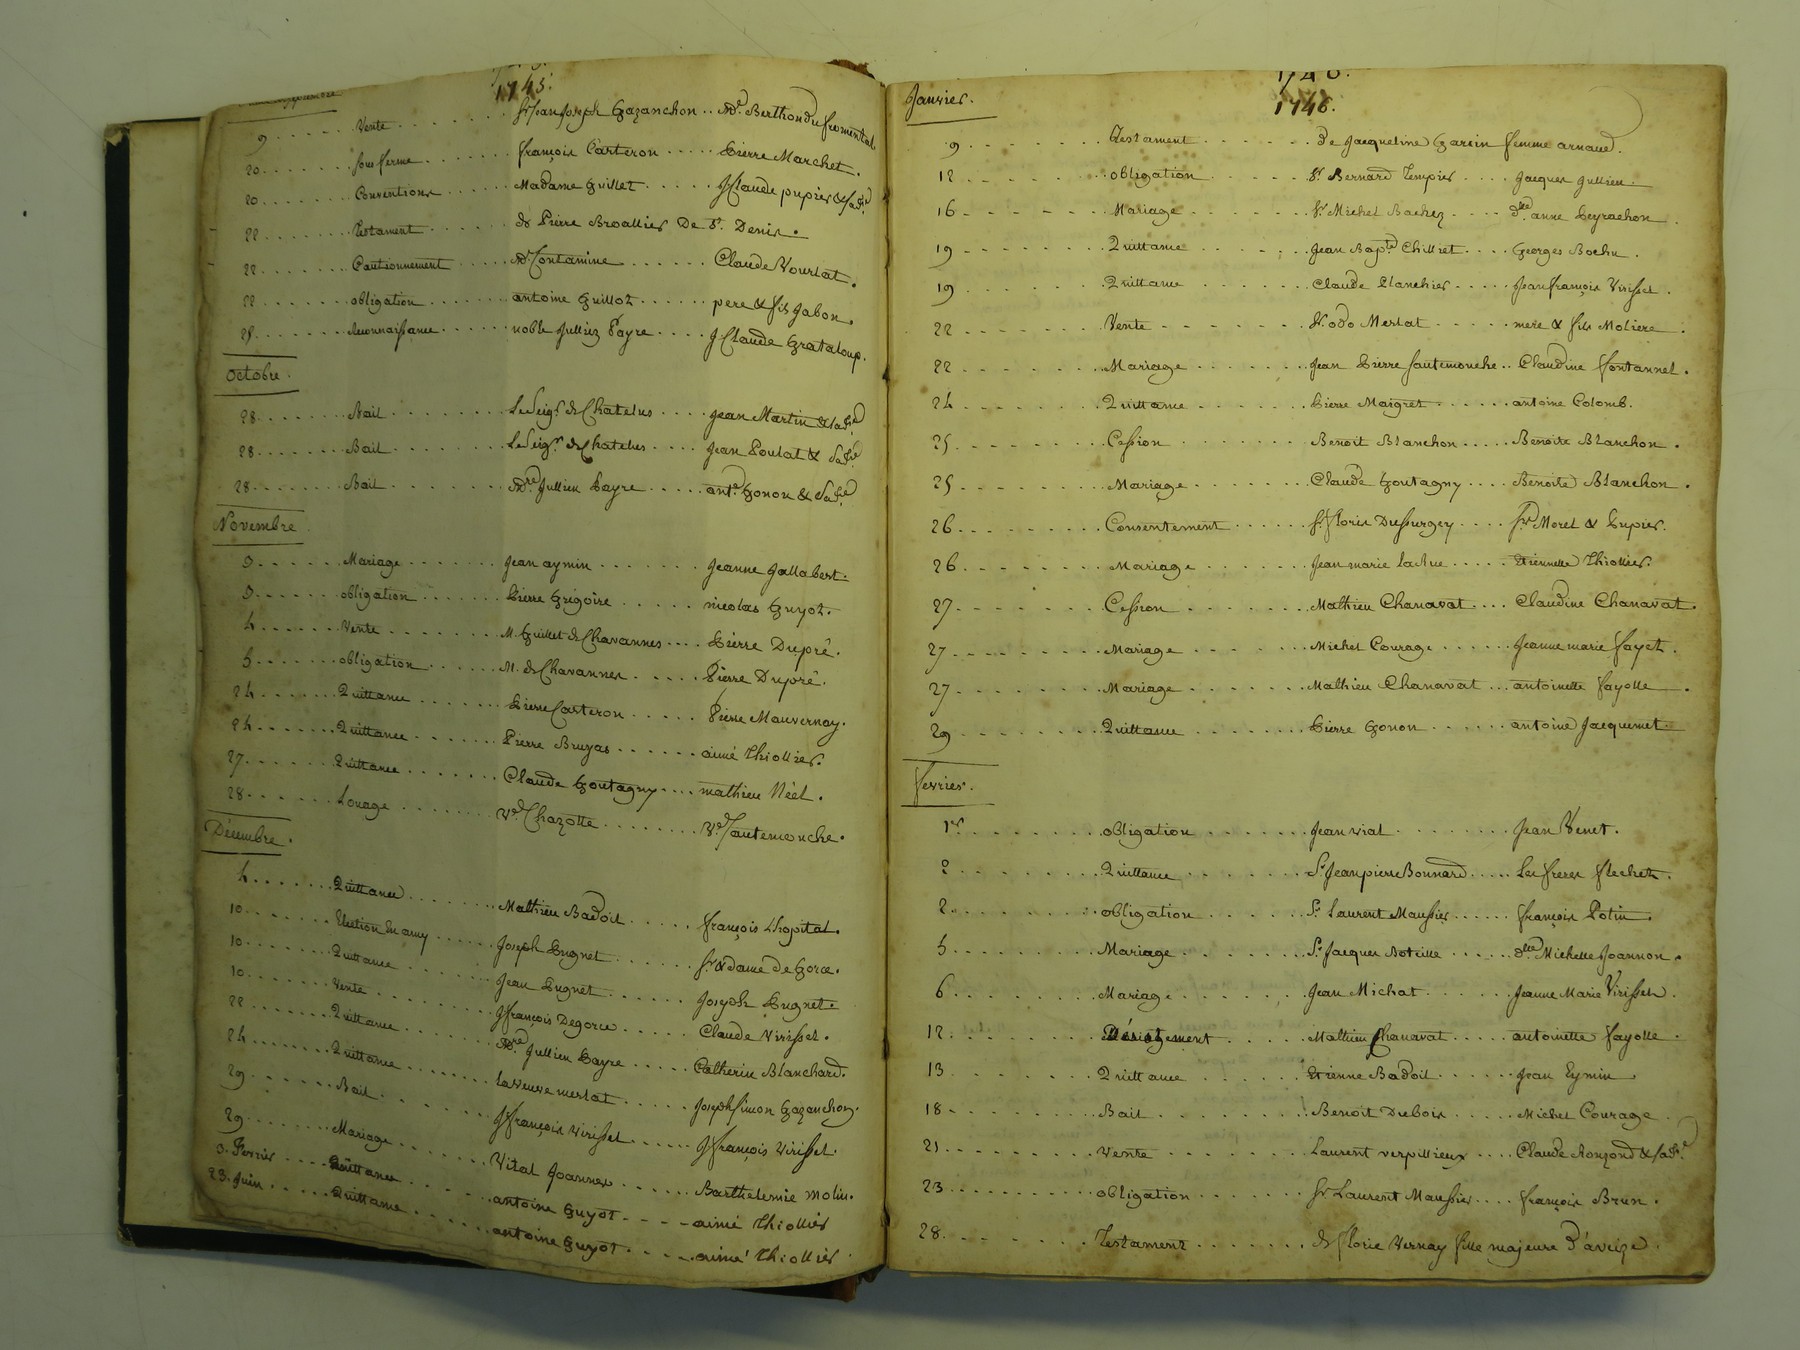 1745.
9 Vente Sr Jean Joseph Gazanchon Md. Berthon du fromental
20 sous ferme françois Carteron Pierre Marchet.
20 Conventions Madame Guillet J Claude pupier & sa fe
22 Testament de Pierre Broallier De St. Denis.
22 Cautionnement Md. Contamine Claude Vourlat.
22 obligation antoine Guillot pere & fils Jabon.
25 Reconnaissance noble Jullien Payre J Claude Grataloup.
Octobre.
28 Bail Le Seigr. de Chatelus Jean Martin & sa fe
28 Bail Le Seigr. de Chatelus Jean Poulat & sa fe
28 Bail Mre Jullien Payre ante. Gonon & sa fe
Novembre
3 Mariage Jean aymin Jeanne Jallabert.
3 obligation Pierre Grégoire nicolas Guyot.
4 Vente M. Guillet de Chavannes Pierre Dupré.
5 obligation M. de Chavannes Pierre Dupré.
24 Quittance Pierre Carteron Pierre Mauvernay.
24 Quittance Pierre Bruyas aimé Thiollier.
27 Quittance Claude Goutagny mathieu Néel.
28 Louage Ve. Chazotte Ve. Sautemouche.
Décembre.
4 Quittance Mathieu Badoil françois Lhopital.
10 Election En amy Joseph Pugnet Sr. & dame de Gorce.
10 Quittance Jean Pugnet Joseph Pugnet.
10 Vente J françois Degorce Claude Virisset.
22 Quittance Mre Jullien Payre Catherine Blanchard.
24 Quittance La veuve merlat Joseph Simon Gazanchon.
29 Bail J françois Virisset J françois Virisset.
29 Mariage Vital Joannes Barthelemie molin.
3. Fevrier Quittance antoine Guyot aimé Thiollier
23. Juin Quittance antoine Guyot aimé Thiollier
1746.
Janvier.
9 Testament de Jacqueline Garcin femme arnaud.
12 obligation Sr Bernard Tempier Jacques Jullien.
16 Mariage Sr Michel Bachez dlle anne Peyrachon
19 Quittance Jean Bapte. Chillret Georges Bochu.
19 Quittance Claude Planchier Jean françois Virisset.
22 Vente Sr. odo Merlat mere & fils Moliere.
22 Mariage Jean Pierre Sautemouche Claudine Fontannel.
24 Quittance Pierre Maigret antoine Colomb.
25 Cession Benoit Blanchon Benoite Blanchon.
25 Mariage Claude Goutagny Benoite Blanchon.
26 Consentement Sr. floris Dussurgey Srs Morel & Pupier.
26 Mariage Jean marie laRue Etiennette Thiollier.
27 Cession Mathieu Chanavat Claudine Chanavat.
27 Mariage Michel Courage Jeanne marie fayet.
27 Mariage Mathieu Chanavat antoinette fayolle.
29 Quittance Pierre Gonon antoine Jacquemet
fevrier.
1er obligation Jean vial Jean Venet.
2 Quittance Sr Jean pierre Bonnard Les freres flechet.
2 obligation Sr Laurent Maussier françois Potin.
5 Mariage Sr. Jacques Notaille dlle. Michelle Joannon.
6 Mariage Jean Michat Jeanne Marie Virisset.
12 Désistement Mathieu Chanavat antoinette fayolle.
13 Quittance Etienne Badoil Jean Eymin
18 Bail Benoit Dubois Michel Courage.
21 Vente Laurent verpillieux Claude Ronzond & sa fe
23 obligation Sr Laurent Maussier françois Brun.
28 Testament de florie Vernay fille majeure d'aveize.